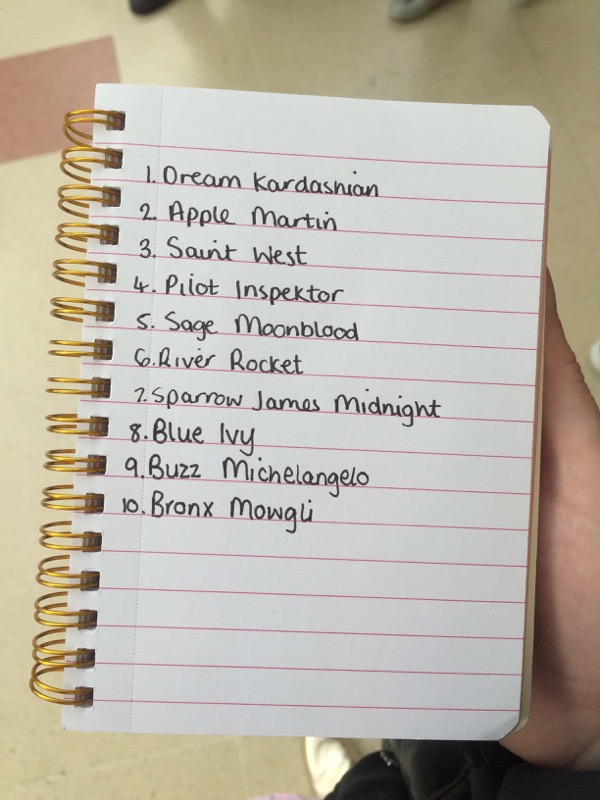 1. Dream Kardashian
2. Apple Martin
3. Saint West
4. Pilot Inspektor
5. Sage Moonblood
6. River Rocket
7. Sparrow James Midnight
8. Blue Ivy
9. Buzz Michelangelo
10. Bronx Mowgli